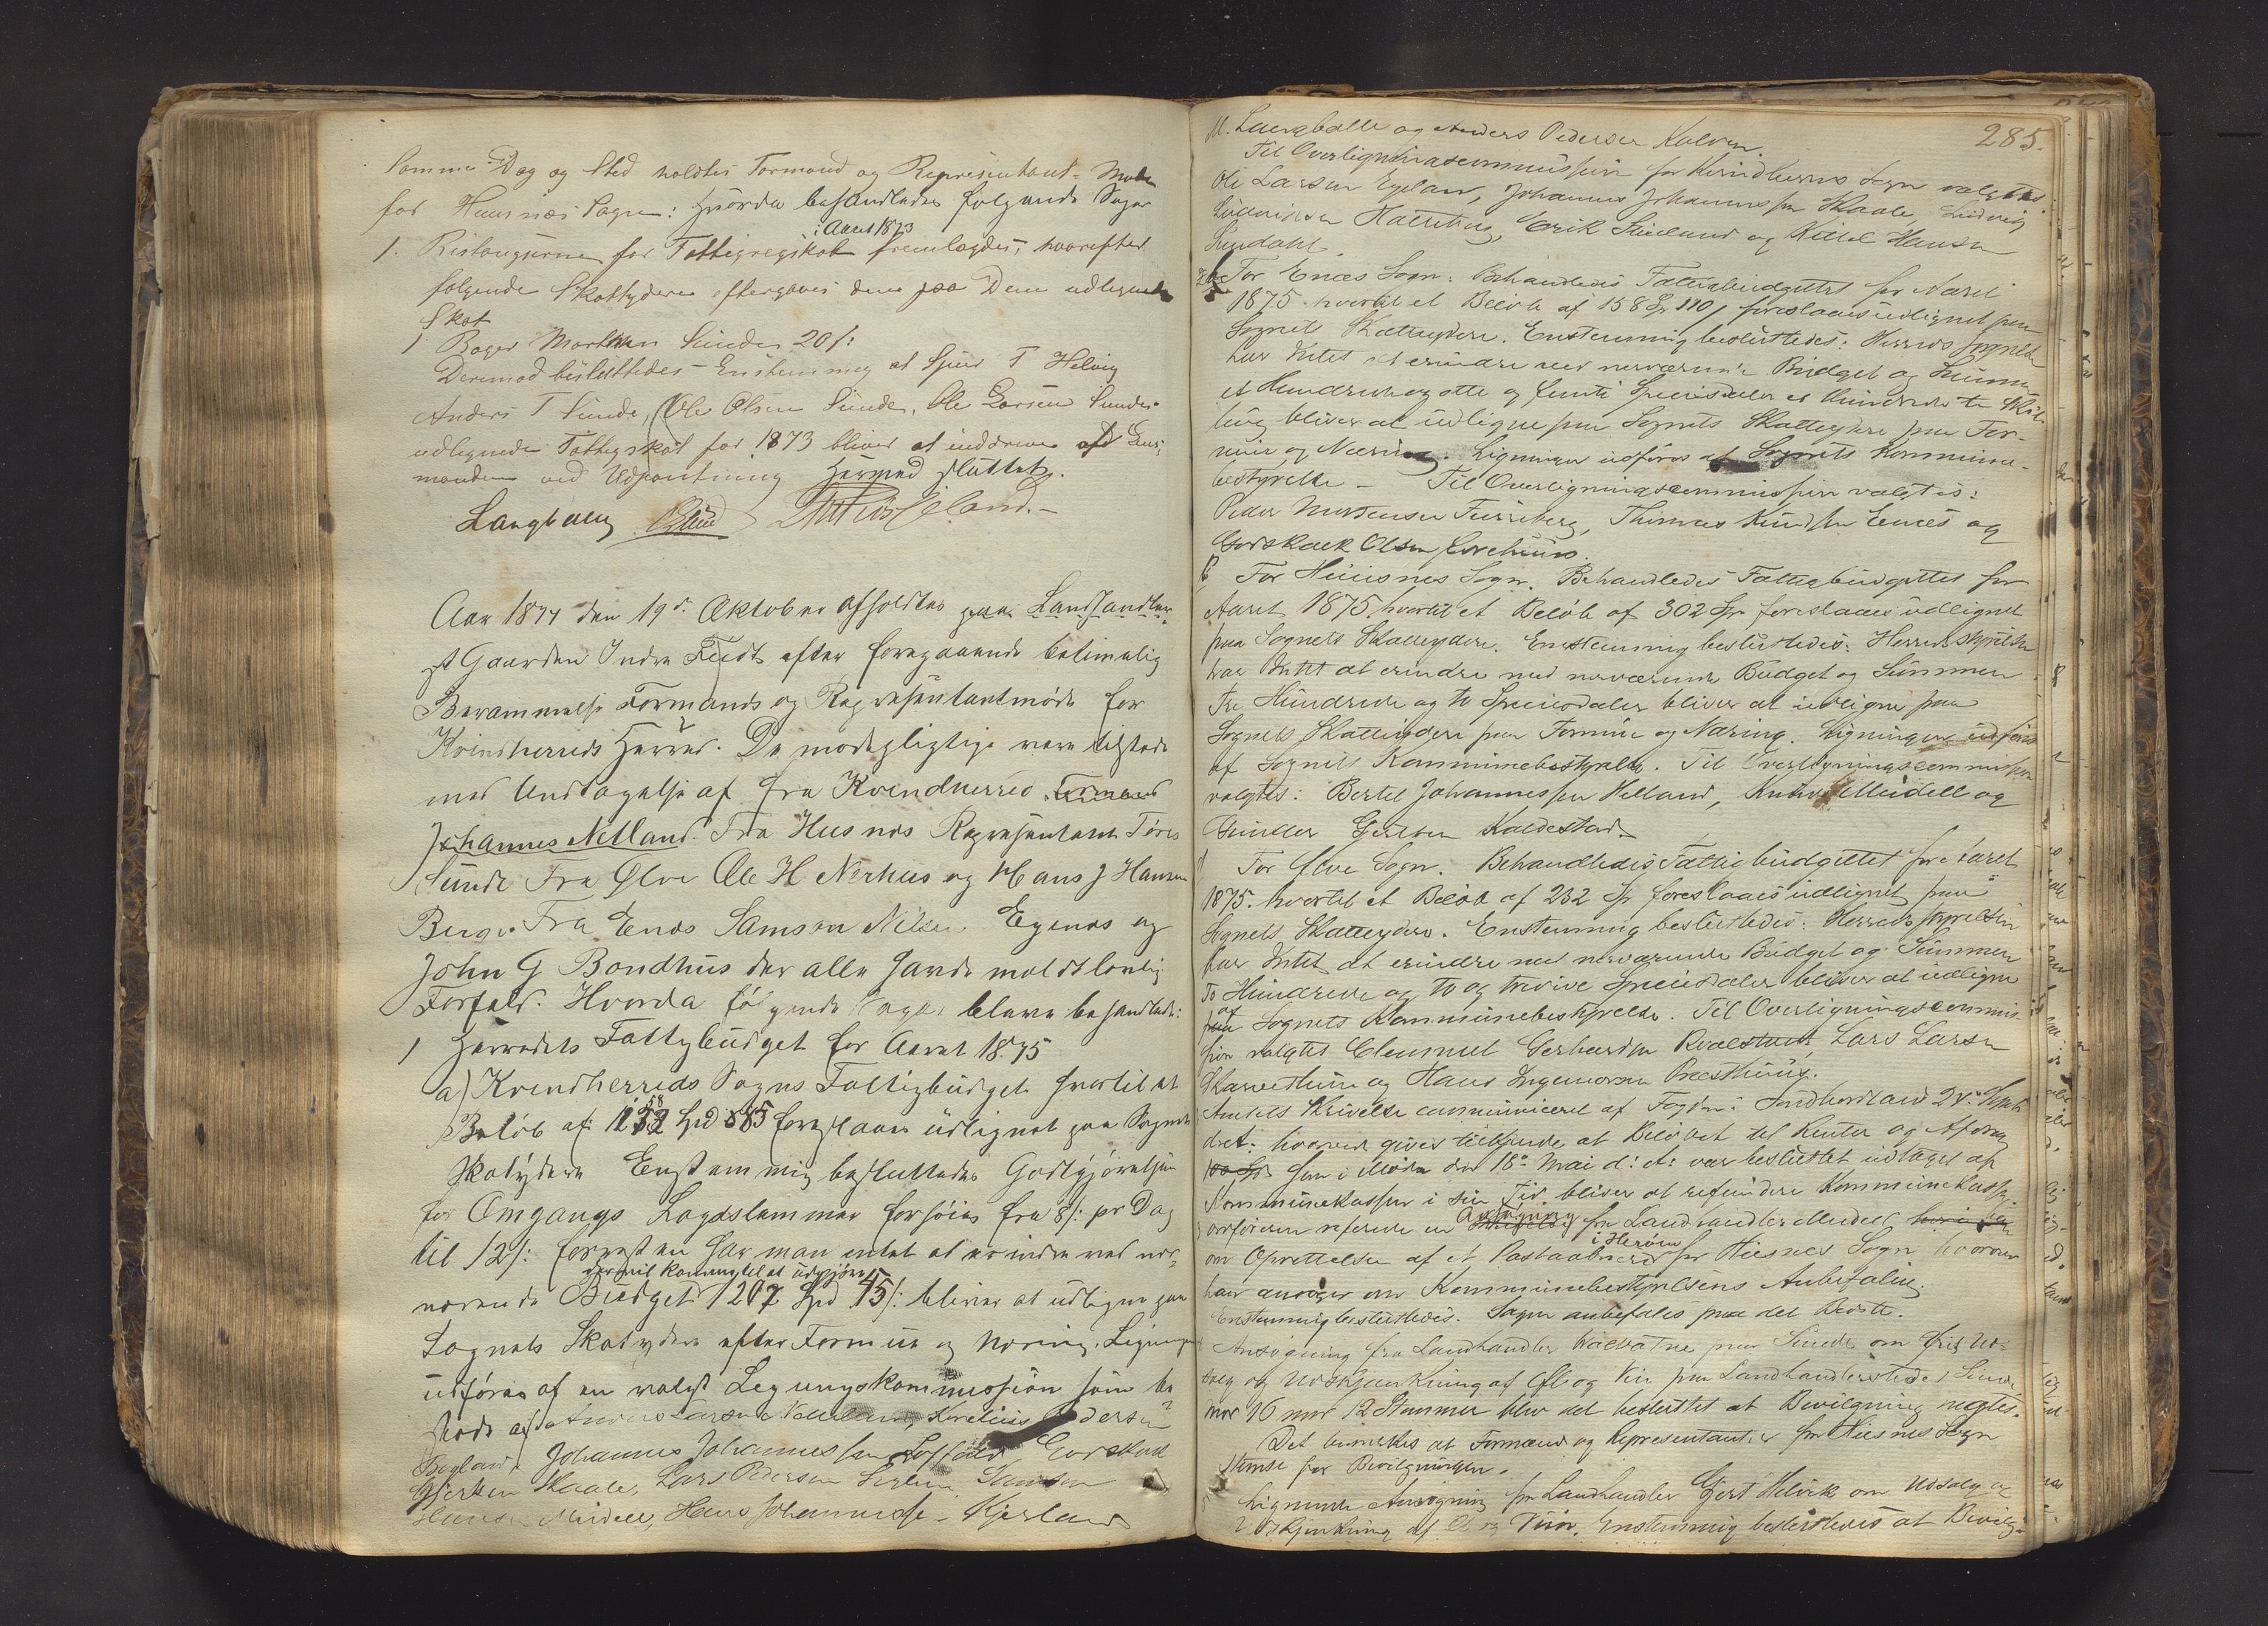 Samme Dag og Sted holdtes Formand og Representant- Møde
for Huusnæs Sogn: Hvorda behandledes følgende Sager
i Aaret 1873
1. Ristangserne for Fattigregskab fremlagdes, hvorefter
følgende Skattydere eftergaves den paa Dem udlignede
Skat
1 Roger Morthen Sunde 20 s:
Derimod besluttedes Enstemmig at Sjur T Helvig
Anders T Sunde, Ole Olsen Sunde, Ole Larsen Sunde
udlignede Fattigskat for 1873 bliver at inddrive af Lens¬
manden ved Udpantning Hermed sluttet.
Langballe
Aar 1874 den 19de Oktober afholdtes paa Landhandler¬
st Gaarden Indre Eidt efter foregaaende betimelig
Berammelse Formands og Representantmøde for
Kvindherreds Herred. De mødepligtige vare tilstede
med Undtagelse af fra Kvindherred Formand
Johannes Netland. Fra Husnes Representant Tøres
Sunde Fra Ølve Ole H Nerhus og Hans J Hansen
Berge. Fra Enes Samson Nilsen Egenes og
John G Bondhus der alle havde meldt lovlig
Forfald. Hvorda følgende Sager bleve behandlede:
1 Herredets Fattigbudget for Aaret 1875
a) Kvindherreds Sogns Fattigbudget hvortil et
Beløb af: Spd foreslaaes udlignet paa Sognets
Skatydere Enstemmig besluttedes Godtgjørelsen
for Omgangs Lægdslemmer forhøies fra 8 s: pr Dag
til 12 s: forresten har man intet at erindre ved nær¬
der vil komme til at udgjøre
værende Budget 1207 Spd 15 s: bliver at udligne paa
Sognets Skatydere efter Formue og Næring. Ligningen
udføres af en valgt Legningskommission som be
stode af Anders Larsen Kornelius Pedersen
Johannes Johannessen Gorskalk
Skaale, Lars Pedersen Samson
Hansen Meidell, Hans Johannesse Kjerland
285.
M. Langballe og Anders Pedersen Kalven.
Til Overligningscommissjon for Kvindherreds Sogn valgtes
Ole Larsen Egeland, Johannes Johannessen Skaale, Ludvig
Ludvigsen Hatteberg, Erik Guuland og Kittel Hansen
Sundahl
For Enæs Sogn: Behandledes Fattigbudgettet for Aaret
1875 hvortil et Beløb af 158 Sp 110 s foreslaaes udlignet paa
Sognets Skatteydere. Enstemmig besluttedes: Herredsstyrelsen
har Intet at erindre ved nærværende Budget og Summen
et Hundrede og otte og femti Speciesdaler et hundrede ti Skil¬
ling bliver at udligne paa Sognets Skatteydere paa For¬
mue og Næring. Ligningen udføres af Sognets Kommune-
bestyrelse – Til Overligningscommission valgtes:
Peder Mortensen Furreberg, Thomas Knudsen Enæs og
Gorskalk OlsenØrehuus.
For Huusnes Sogn. Behandledes Fattigbudgettet for
Aaret 1875 hvortil et Beløb af 302 Sp foreslaaes udlignet
paa Sognets Skatteydere. Enstemmig besluttedes: Herredsstyrelsen
har Intet at erindre med nærværende Budget og Summen
Tre Hundrede og to Speciesdaler bliver at udligne paa
Sognets Skatteydere paa Formue og Næring. Ligningen udføres
af Sognets Kommunebestyrelse. Til Overligningscommission
valgtes: Bertel Johannessen Helland, Knud Meidell og
Gunder Gertsen Kaldestad
For Ølve Sogn. Behandledes Fattigbudgettet for Aaret
1875. hvortil et Beløb af 232 Sp foreslaaes udlignet paa
Sognets Skatteydere. Enstemmig besluttedes: Herredsstyrelsen
har Intet at erindre med nærværende Budget og Summen
To Hundrede og to og tredive Speciesdaler bliver at udligne
af Sognets Kommunebestyrelse. Til Overligningscommis¬
sion valgtes Clemmet Gerhardsen Kvalstad, Lars Larsen
og Hans Ingemorsen Præsthuus.
Amtets Skrivelse communiceret af Fogden i Søndhordland 2 Septr
d.A: hvorved gives tilkjende at Beløbet til Renter og Afdrag
som i Møde den 18de Mai d: A: var besluttet udtaget af
Kommunekassen i sin Tid bliver at refundere Kommunekassen.
Ansøgning fra Landhandler Meidell
i Herøen
om Oprettelse af et Postaabneri for Huusnes Sogn hvorom
han ansøger om Kommunebestyrelsens Anbefaling.
Enstemmig besluttedes: Sagen anbefales paa det Bedste.
Ansøgning fra Landhandler Valvatne paa Sunde om Ud¬
salg og Udskjænkning af Øl og Vin paa Landhandlerstedet Sunde
mod 16 mod 12 Stemmer blev det besluttet at Bevilgning negtes.
Det bemerkes at Formænd og Representanter for Huusnes Sogn
stemte for Bevilgningen.
Lignende Ansøgning fra Landhandler Gjert Helvik om Udsalg og
Udskjenkning af Øl og Viin. Enstemmig besluttedes at Bevilg¬